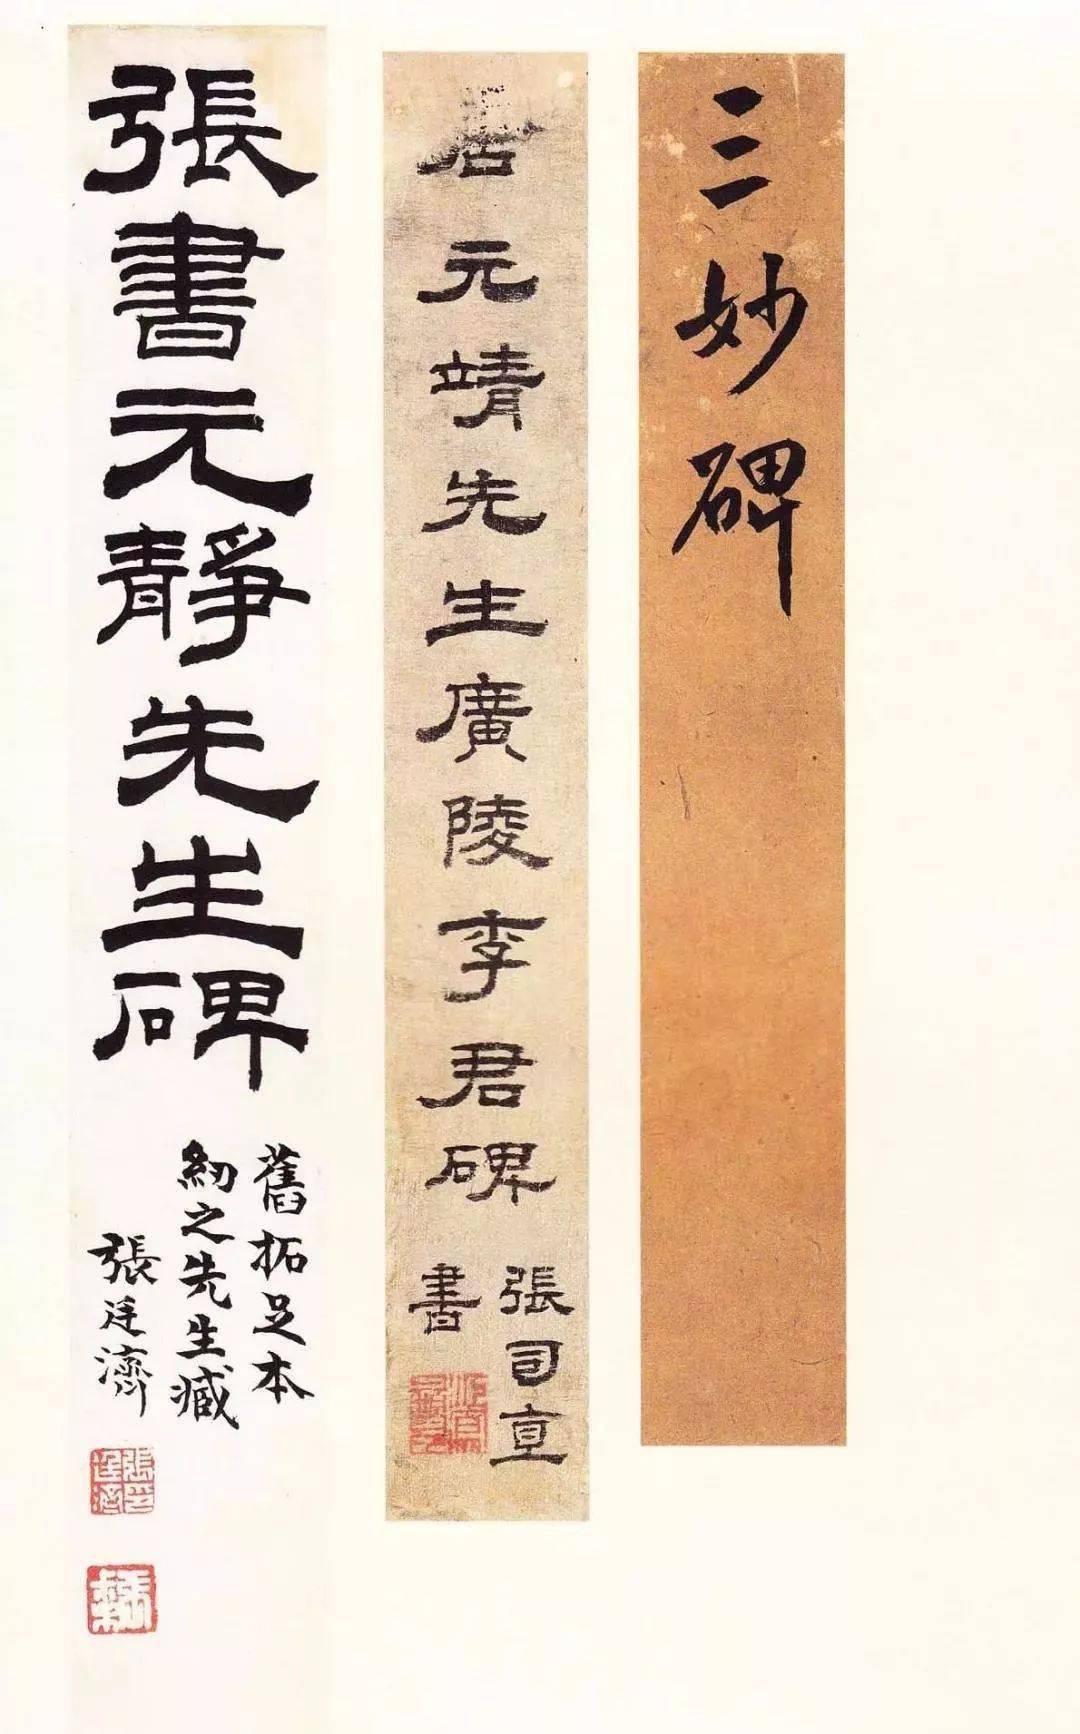 三妙碑
元靖先生廣陵李君碑
張司直
書
張書元靜先生碑
舊拓足本
紉之先生臧
張廷濟
張印廷濟